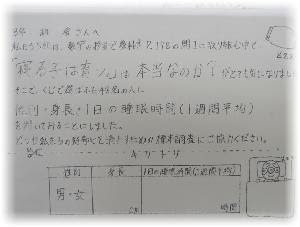 3年 組 番 さんへ
私たちは、数学の授業で教科書 P.198の問1に取り組む中で、
「寝る子は育つ」は本当なのか？がとても気になりました。
そこで、くじで選ばれた48名の人に、
性別・身長・1日の睡眠時間(1週間平均)
を聞いてみることにしました。
どうか私たちの好奇心を満たすための標本調査にご協力ください。
キリトリ
性別 身長 1日の睡眠時間(1週間平均)
男・女 cm 時間